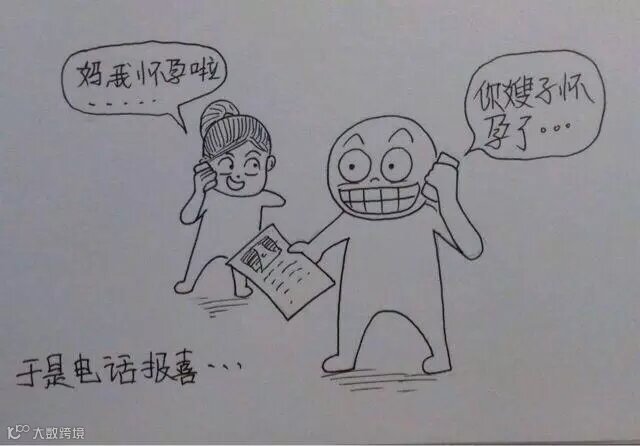 妈我怀孕啦
......
你嫂子怀
孕了...
于是电话报喜...
大数跨境